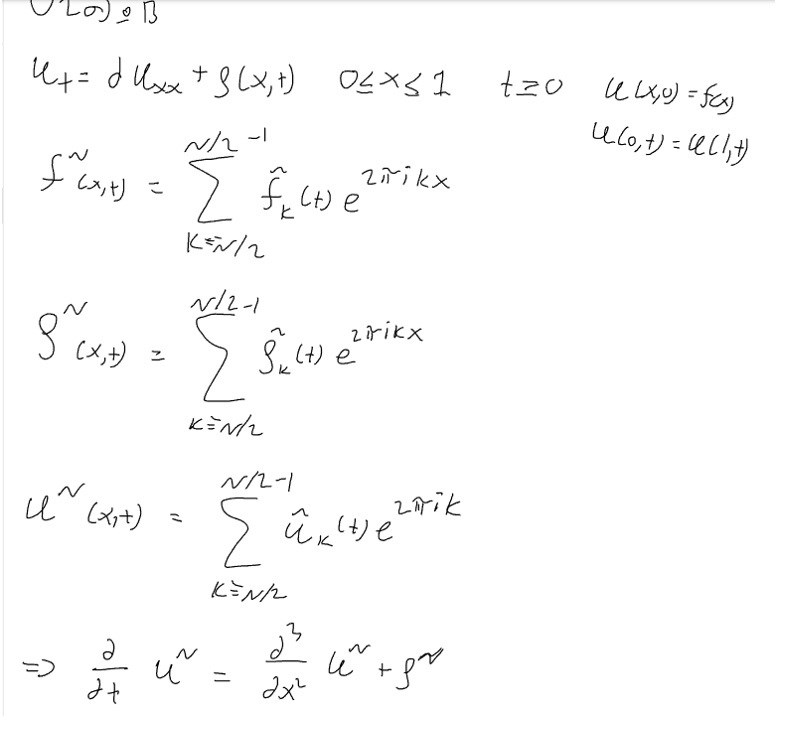 u_t = d u_xx + g(x,t)   0 ≤ x ≤ 1   t ≥ 0   u(x,0) = f(x)
u(0,t) = u(1,t)
f^N(x,t) = ∑_{k=-N/2}^{N/2-1} f̂_k(t) e^{2πikx}
g^N(x,t) = ∑_{k=-N/2}^{N/2-1} ĝ_k(t) e^{2πikx}
u^N(x,t) = ∑_{k=-N/2}^{N/2-1} û_k(t) e^{2πik}
=> ∂/∂t u^N = ∂^3/∂x^2 u^N + g^N